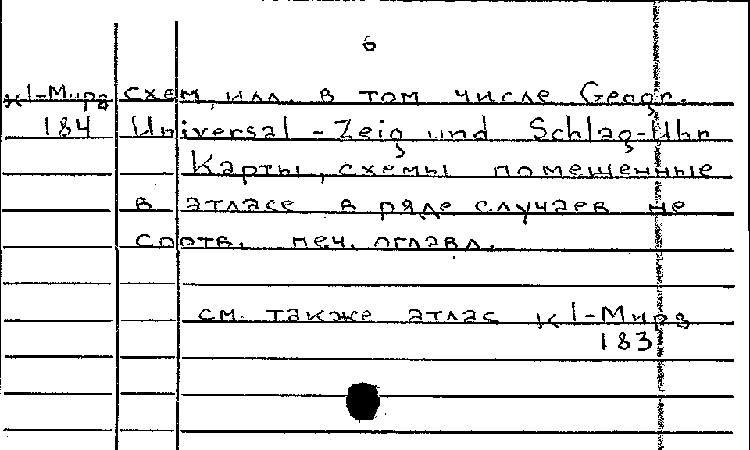 6
К 1-Мира схем, илл. в том числе Geogr.
184 Universal-Zeig und Schlag-Uhr
Карты, схемы помещенные
в атласе в ряде случаев не
соотв. печ. оглавл.
см. также атлас К 1-Мира
183